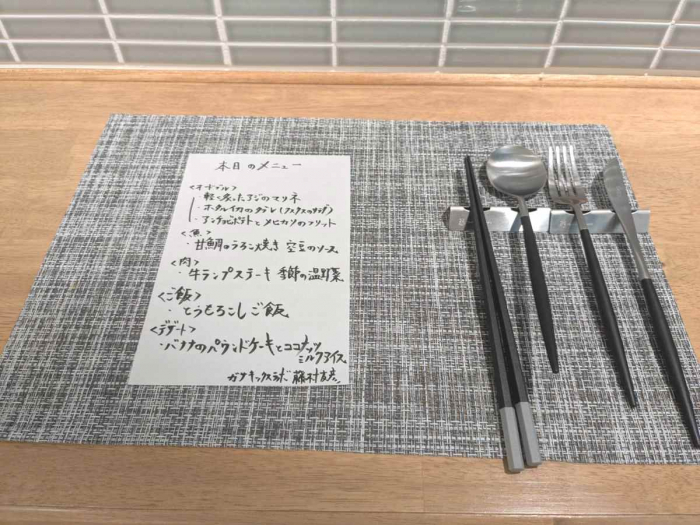 本日のメニュー
<オードブル>
軽く炙ったアジのマリネ
・ホタルイカの
・アンチョビポテトとメヒカリのフリット
<魚>
・甘鯛のうろこ焼き 空豆のソース
<肉>
・牛ランプステーキ 季節の温野菜
<ご飯>
・とうもろこしご飯
<デザート>
・バナナのパウンドケーキとココナッツ
ミルクアイス
藤村